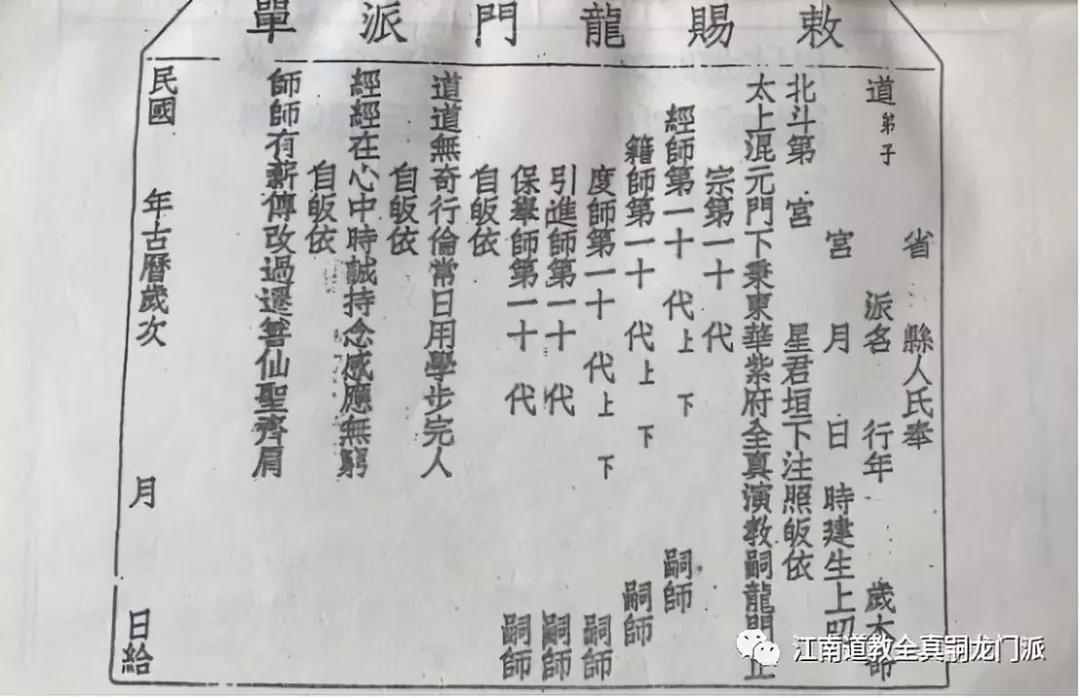 敕賜龍門派單
省 縣人氏奉
道弟子 派名 行年 歲本命
宮 月 日 時建生上
北斗第 宮 星君垣下注照皈依
太上混元門下秉東華紫府全真演教嗣龍門正
宗第一十 代
經師第一十 代上下 嗣師
籍師第一十 代上下 嗣師
度師第一十 代上下 嗣師
引進師第一十 代 嗣師
保舉師第一十 代 嗣師
自皈依
道道無奇行倫常日用學步完人
自皈依
經經在心中時誠持念感應無窮
自皈依
師師有薪傳改過遷善仙聖齊肩
民國 年古曆歲次 月 日給
江南道教全真嗣龙门派